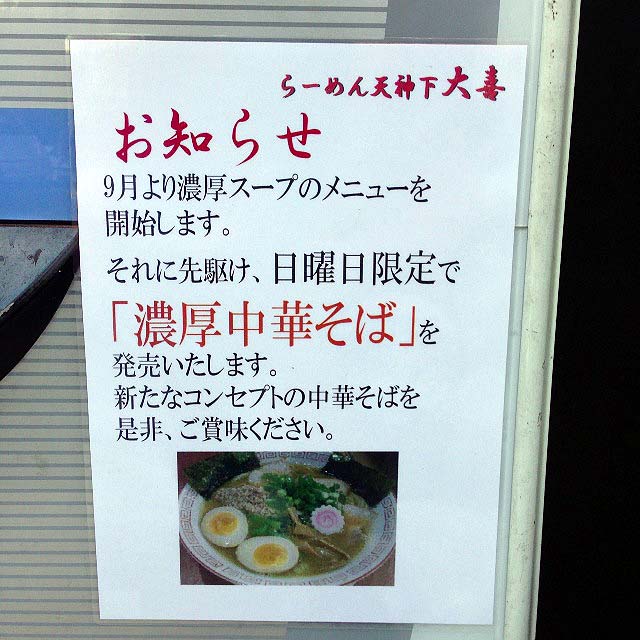 らーめん天神下大喜
お知らせ
9月より濃厚スープのメニューを
開始します。
それに先駆け、日曜日限定で
「濃厚中華そば」を
発売いたします。
新たなコンセプトの中華そばを
是非、ご賞味ください。